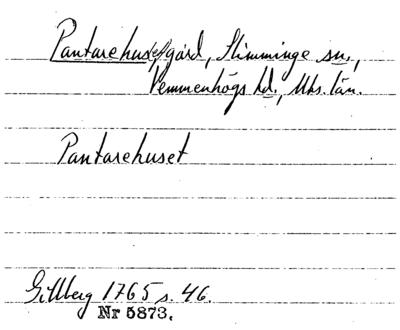 Pantarehuset, gård, Slimminge sn.,
Vemmenhögs hd., Mhs. län.
Pantarehuset
Gillberg 1765 s. 46.
Nr 5873.